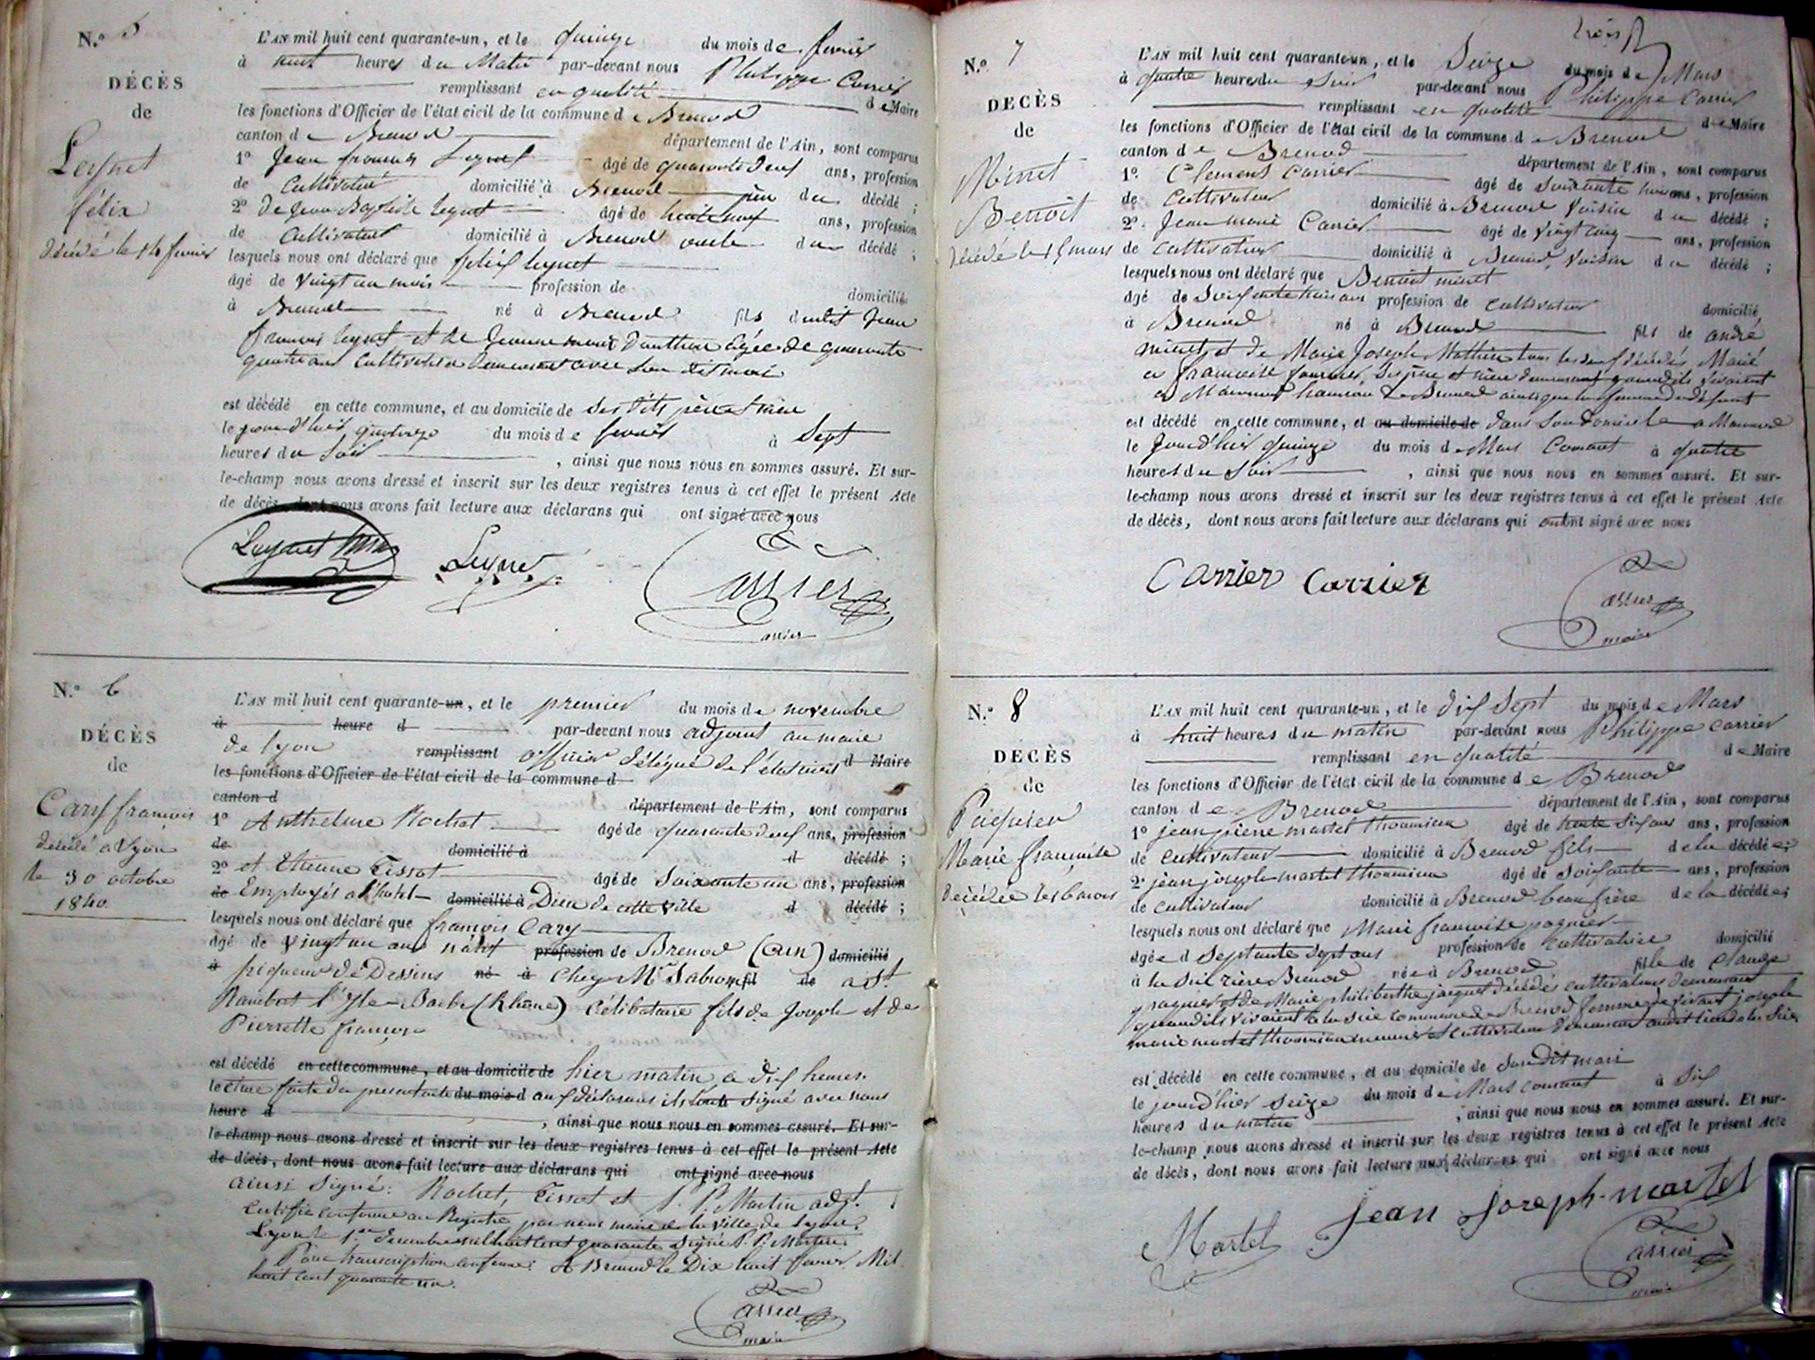 N.º 5
DÉCÈS
de
Leynet
félix
Décédé le 14 février
L'AN mil huit cent quarante-un, et le quinze du mois de février
à huit heures du Matin par-devant nous Philippe Carrier
remplissant en qualité de Maire
les fonctions d'Officier de l'état civil de la commune de Brenod
canton de Brenod département de l'Ain, sont comparus
1º Jean françois Leynet âgé de quarante deux ans, profession
de Cultivateur domicilié à Brenod père du décédé ;
2º de Jean Baptiste Leynet âgé de ans, profession
de Cultivateur domicilié à Brenod oncle du décédé ;
lesquels nous ont déclaré que félix Leynet
âgé de vingt un mois profession de domicilié
à Brenod né à Brenod fils dudit Jean
françois Leynet et de Jeanne marie âgée de quarante
quatre ans Cultivatrice demeurant avec son dit mari
est décédé en cette commune, et au domicile de Ses dits père et mère
le jour d'hier quatorze du mois de février à Sept
heures du Soir , ainsi que nous nous en sommes assuré. Et sur-
le-champ nous avons dressé et inscrit sur les deux registres tenus à cet effet le présent Acte
de décès, dont nous avons fait lecture aux déclarans qui ont signé avec nous
Leynet Leynet Carrier
N.º 6
DÉCÈS
de
Cary françois
décédé à Lyon
le 30 octobre
1840
L'AN mil huit cent quarante-un, et le premier du mois de novembre
à heure d par-devant nous adjoint au maire
de Lyon remplissant officier délégué de l'état civil d Maire
les fonctions d'Officier de l'état civil de la commune d
canton d département de l'Ain, sont comparus
1º Anthelme Rochet âgé de quarante deux ans, profession
de domicilié à d décédé ;
2º et Etienne Tissot âgé de Soixante un ans, profession
de Employés à l'hotel domicilié à Dieu de cette ville d décédé ;
lesquels nous ont déclaré que françois Cary
âgé de vingt un ans natif profession de Brenod (ain) domicilié
à piqueur de Dessins né à Chez Mr fil de a St
Rambert l'Isle Barbe (Rhône) Célibataire fils de Joseph et de
Pierrette
est décédé en cette commune, et au domicile de hier matin à dix heures.
lecture faite du présent acte du mois d aux déclarans ils ont signé avec nous
heure d , ainsi que nous nous en sommes assuré. Et sur-
le-champ nous avons dressé et inscrit sur les deux registres tenus à cet effet le présent Acte
de décès, dont nous avons fait lecture aux déclarans qui ont signé avec nous
ainsi Signé: Rochet, Tissot et J. P. Martin adjt.
Certifié conforme au Registre par nous maire de la ville de Lyon
Lyon le 1er décembre mil huit cent quarante Signé J. P. Martin.
Pour transcription conforme. A Brenod le Dix huit février Mil
huit cent quarante un.
Carrier
maire
trois
N.º 7
DECÈS
de
Minet
Benoit
Décédé le 15 mars
L'AN mil huit cent quarante-un, et le Seize du mois de Mars
à quatre heures du Soir par-devant nous Philippe Carrier
remplissant en qualité de Maire
les fonctions d'Officier de l'état civil de la commune de Brenod
canton de Brenod département de l'Ain, sont comparus
1º Clement Carrier âgé de Soixante ans, profession
de Cultivateur domicilié à Brenod Voisin du décédé ;
2º Jean marie Carrier âgé de Vingt cinq ans, profession
de Cultivateur domicilié à Brenod, Voisin du décédé ;
lesquels nous ont déclaré que Benoit minet
âgé de Soixante trois ans profession de Cultivateur domicilié
à Brenod né à Brenod fils de andré
minet et de Marie Joseph Mathieu tous les deux décédés Marié
a françoise Ses père et mère demeurant quand ils vivaient
hameau de Brenod ainsi que la femme du défunt
est décédé en cette commune, et au domicile de dans Son domicile a
le Jour d'hier quinze du mois de Mars Courant à quatre
heures du Soir , ainsi que nous nous en sommes assuré. Et sur-
le-champ nous avons dressé et inscrit sur les deux registres tenus à cet effet le présent Acte
de décès, dont nous avons fait lecture aux déclarans qui ont signé avec nous
Carrier Carrier Carrier
maire
N.º 8
DECÈS
de
Paquier
Marie françoise
décédée le 16 mars
L'AN mil huit cent quarante-un, et le dix Sept du mois de Mars
à huit heures du matin par-devant nous Philippe Carrier
remplissant en qualité de Maire
les fonctions d'Officier de l'état civil de la commune de Brenod
canton de Brenod département de l'Ain, sont comparus
1º jean pierre martel thoumieu âgé de trente Six ans ans, profession
de cultivateur domicilié à Brenod fils de la décédée ;
2º jean joseph martel thoumieu âgé de Soixante ans, profession
de cultivateur domicilié à Brenod beau frère de la décédée ;
lesquels nous ont déclaré que Marie françoise paquier
âgée d Septante Sept ans profession de cultivatrice domicilié
à la Scie rière Brenod née à Brenod fille de Claude
paquier et de Marie philiberthe jacquet décédés cultivateurs demeurant
quand ils vivaient à la Scie commune de Brenod femme de vivant joseph
marie martel thoumieu meunier et cultivateur demeurant audit lieu de la Scie
est décédé en cette commune, et au domicile de Son dit mari
le jour d'hier Seize du mois de Mars courant à Six
heures du matin , ainsi que nous nous en sommes assuré. Et sur-
le-champ nous avons dressé et inscrit sur les deux registres tenus à cet effet le présent Acte
de décès, dont nous avons fait lecture aux déclarans qui ont signé avec nous
Martel Jean Joseph martel
Carrier
maire